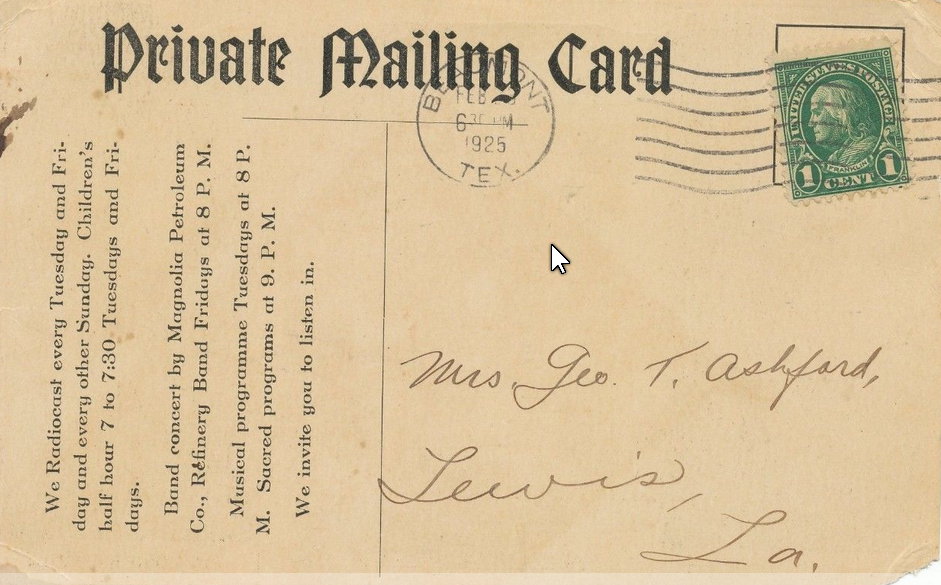 Private Mailing Card
BEAUMONT
FEB
6 30 PM
1925
TEX.
UNITED STATES POSTAGE
FRANKLIN
1 CENT 1
We Radiocast every Tuesday and Fri-
day and every other Sunday. Children's
half hour 7 to 7:30 Tuesdays and Fri-
days.
Band concert by Magnolia Petroleum
Co., Refinery Band Fridays at 8 P. M.
Musical programme Tuesdays at 8 P.
M. Sacred programs at 9. P. M.
We invite you to listen in.
Mrs. Geo. T. Ashford,
Lewis,
La.